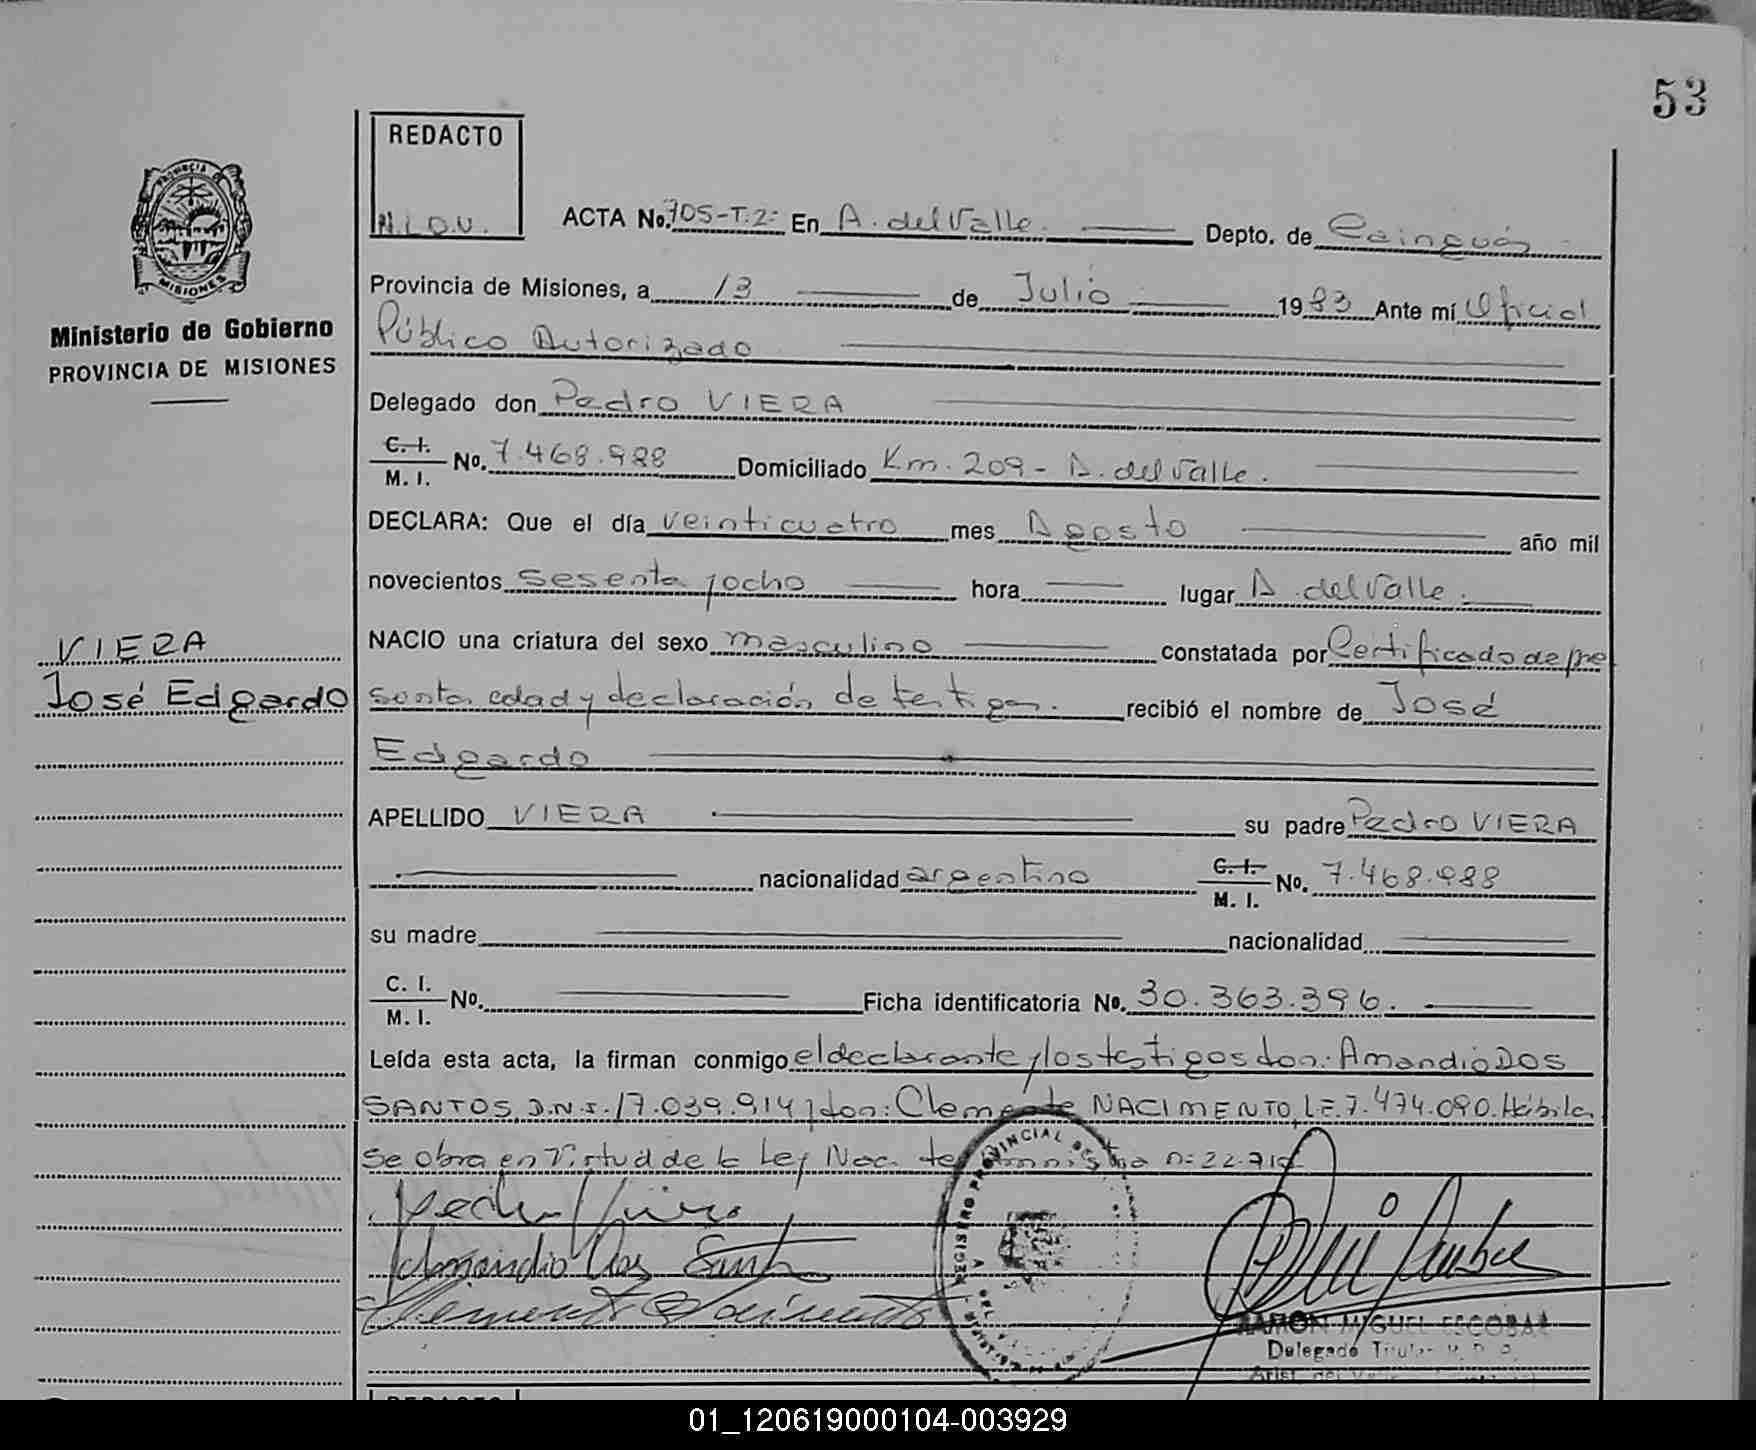 53
REDACTO
PROVINCIA DE
MISIONES
Ministerio de Gobierno
PROVINCIA DE MISIONES
ACTA No. 705-T.2: En A. del Valle. Depto. de Cainguás
Provincia de Misiones, a 13 de Julio 1983 Ante mí Oficial
Público Autorizado
Delegado don Pedro VIERA
C. I.
M. I. No. 7.468.988 Domiciliado Km. 209 - A. del Valle.
DECLARA: Que el día veinticuatro mes Agosto año mil
novecientos sesenta y ocho hora lugar A. del Valle.
VIERA
José Edgardo
NACIO una criatura del sexo masculino constatada por Certificado de pre
sunta edad y declaración de testigos. recibió el nombre de José
Edgardo
APELLIDO VIERA su padre Pedro VIERA
nacionalidad argentino C. I.
M. I. No. 7.468.988
su madre nacionalidad
C. I.
M. I. No. Ficha identificatoria No. 30.363.396.
Leída esta acta, la firman conmigo el declarante y los testigos don: Amandio DOS
SANTOS, D.N.I. 17.039.914 y don: Clemente NACIMENTO, L.E. 7.474.090. Hábiles
Se obra en Virtud de la Ley Nac. de Amnistia n:
Pedro Viera
Amandio Dos Santos
Clemente Nacimento
REGISTRO PROVINCIAL DE
RAMON MIGUEL ESCOBAR
Delegado Titular
REDACTO
01_120619000104-003929